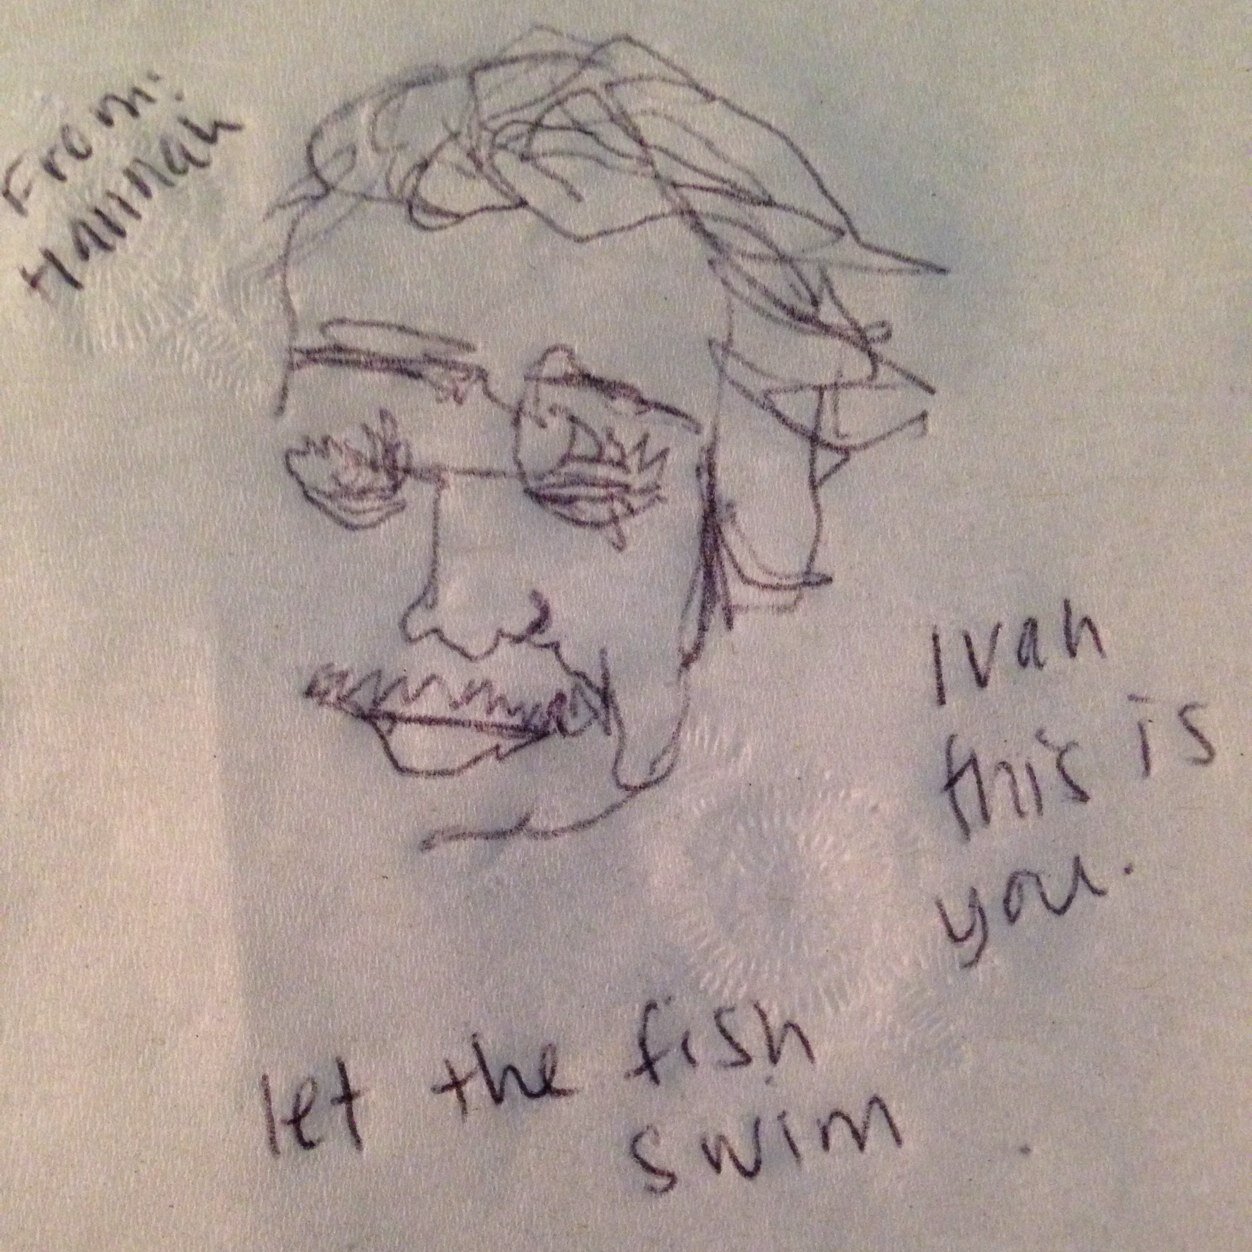 From:
Hannah
Ivan
this is
you.
let the fish
swim